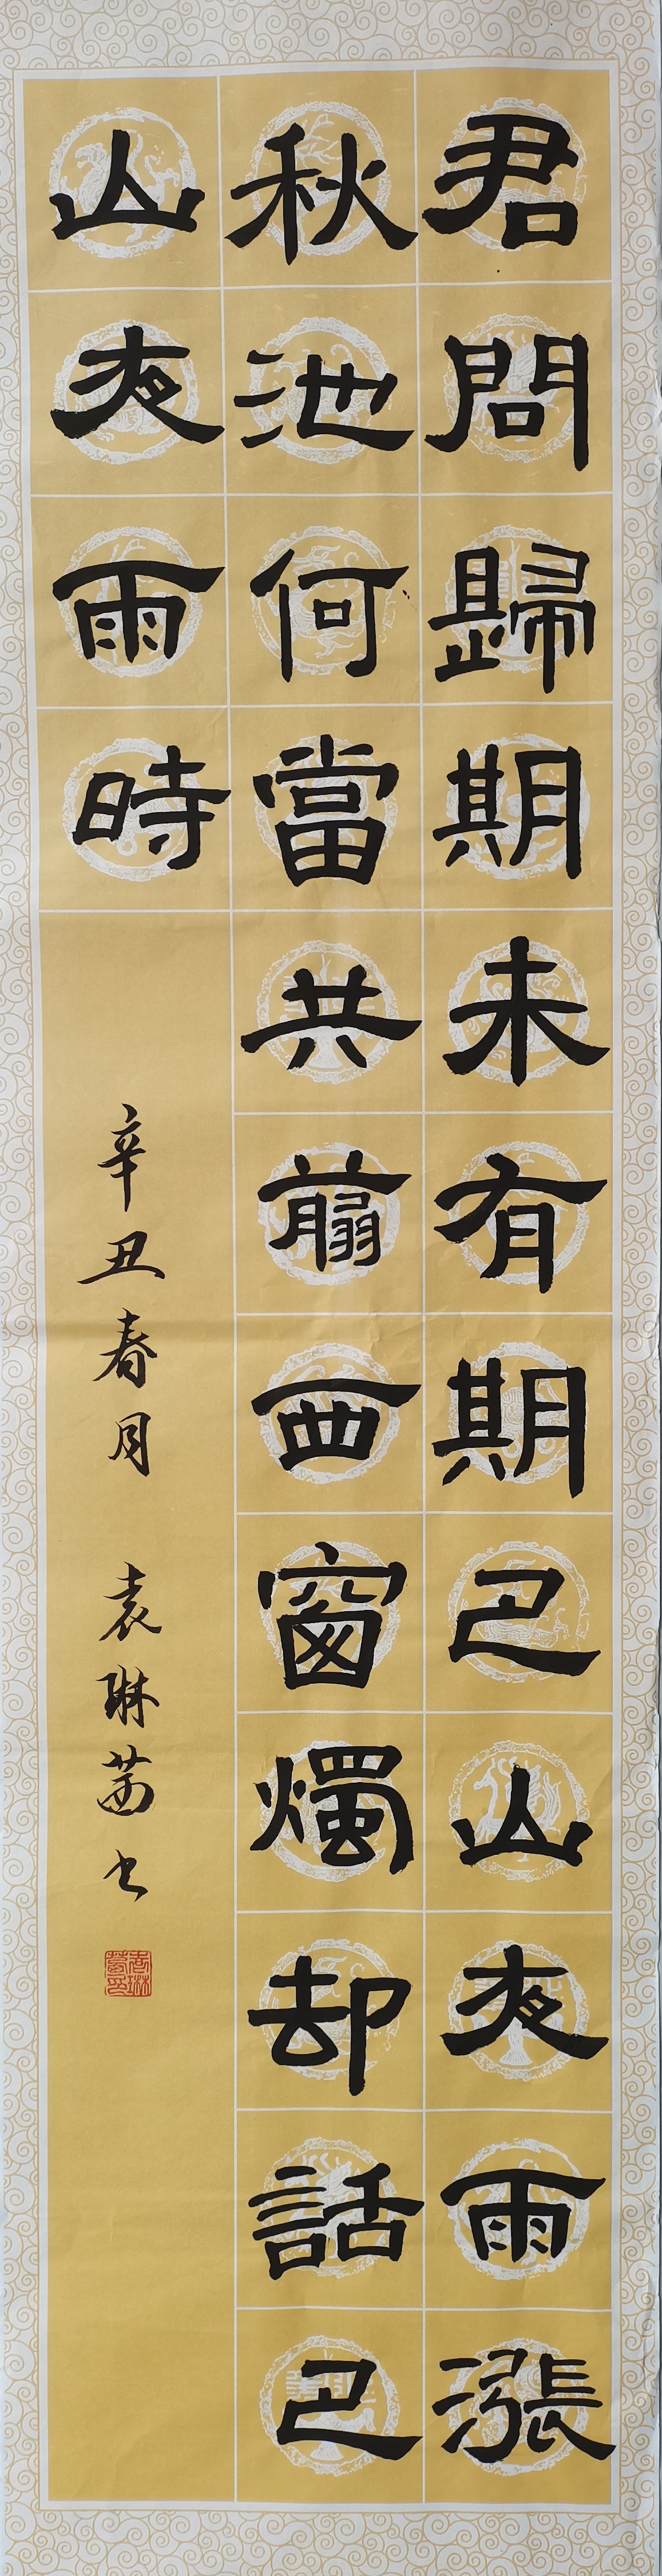 君問歸期未有期巴山夜雨漲
秋池何當共翦西窗燭却話巴
山夜雨時
辛丑春月 袁琳茜书